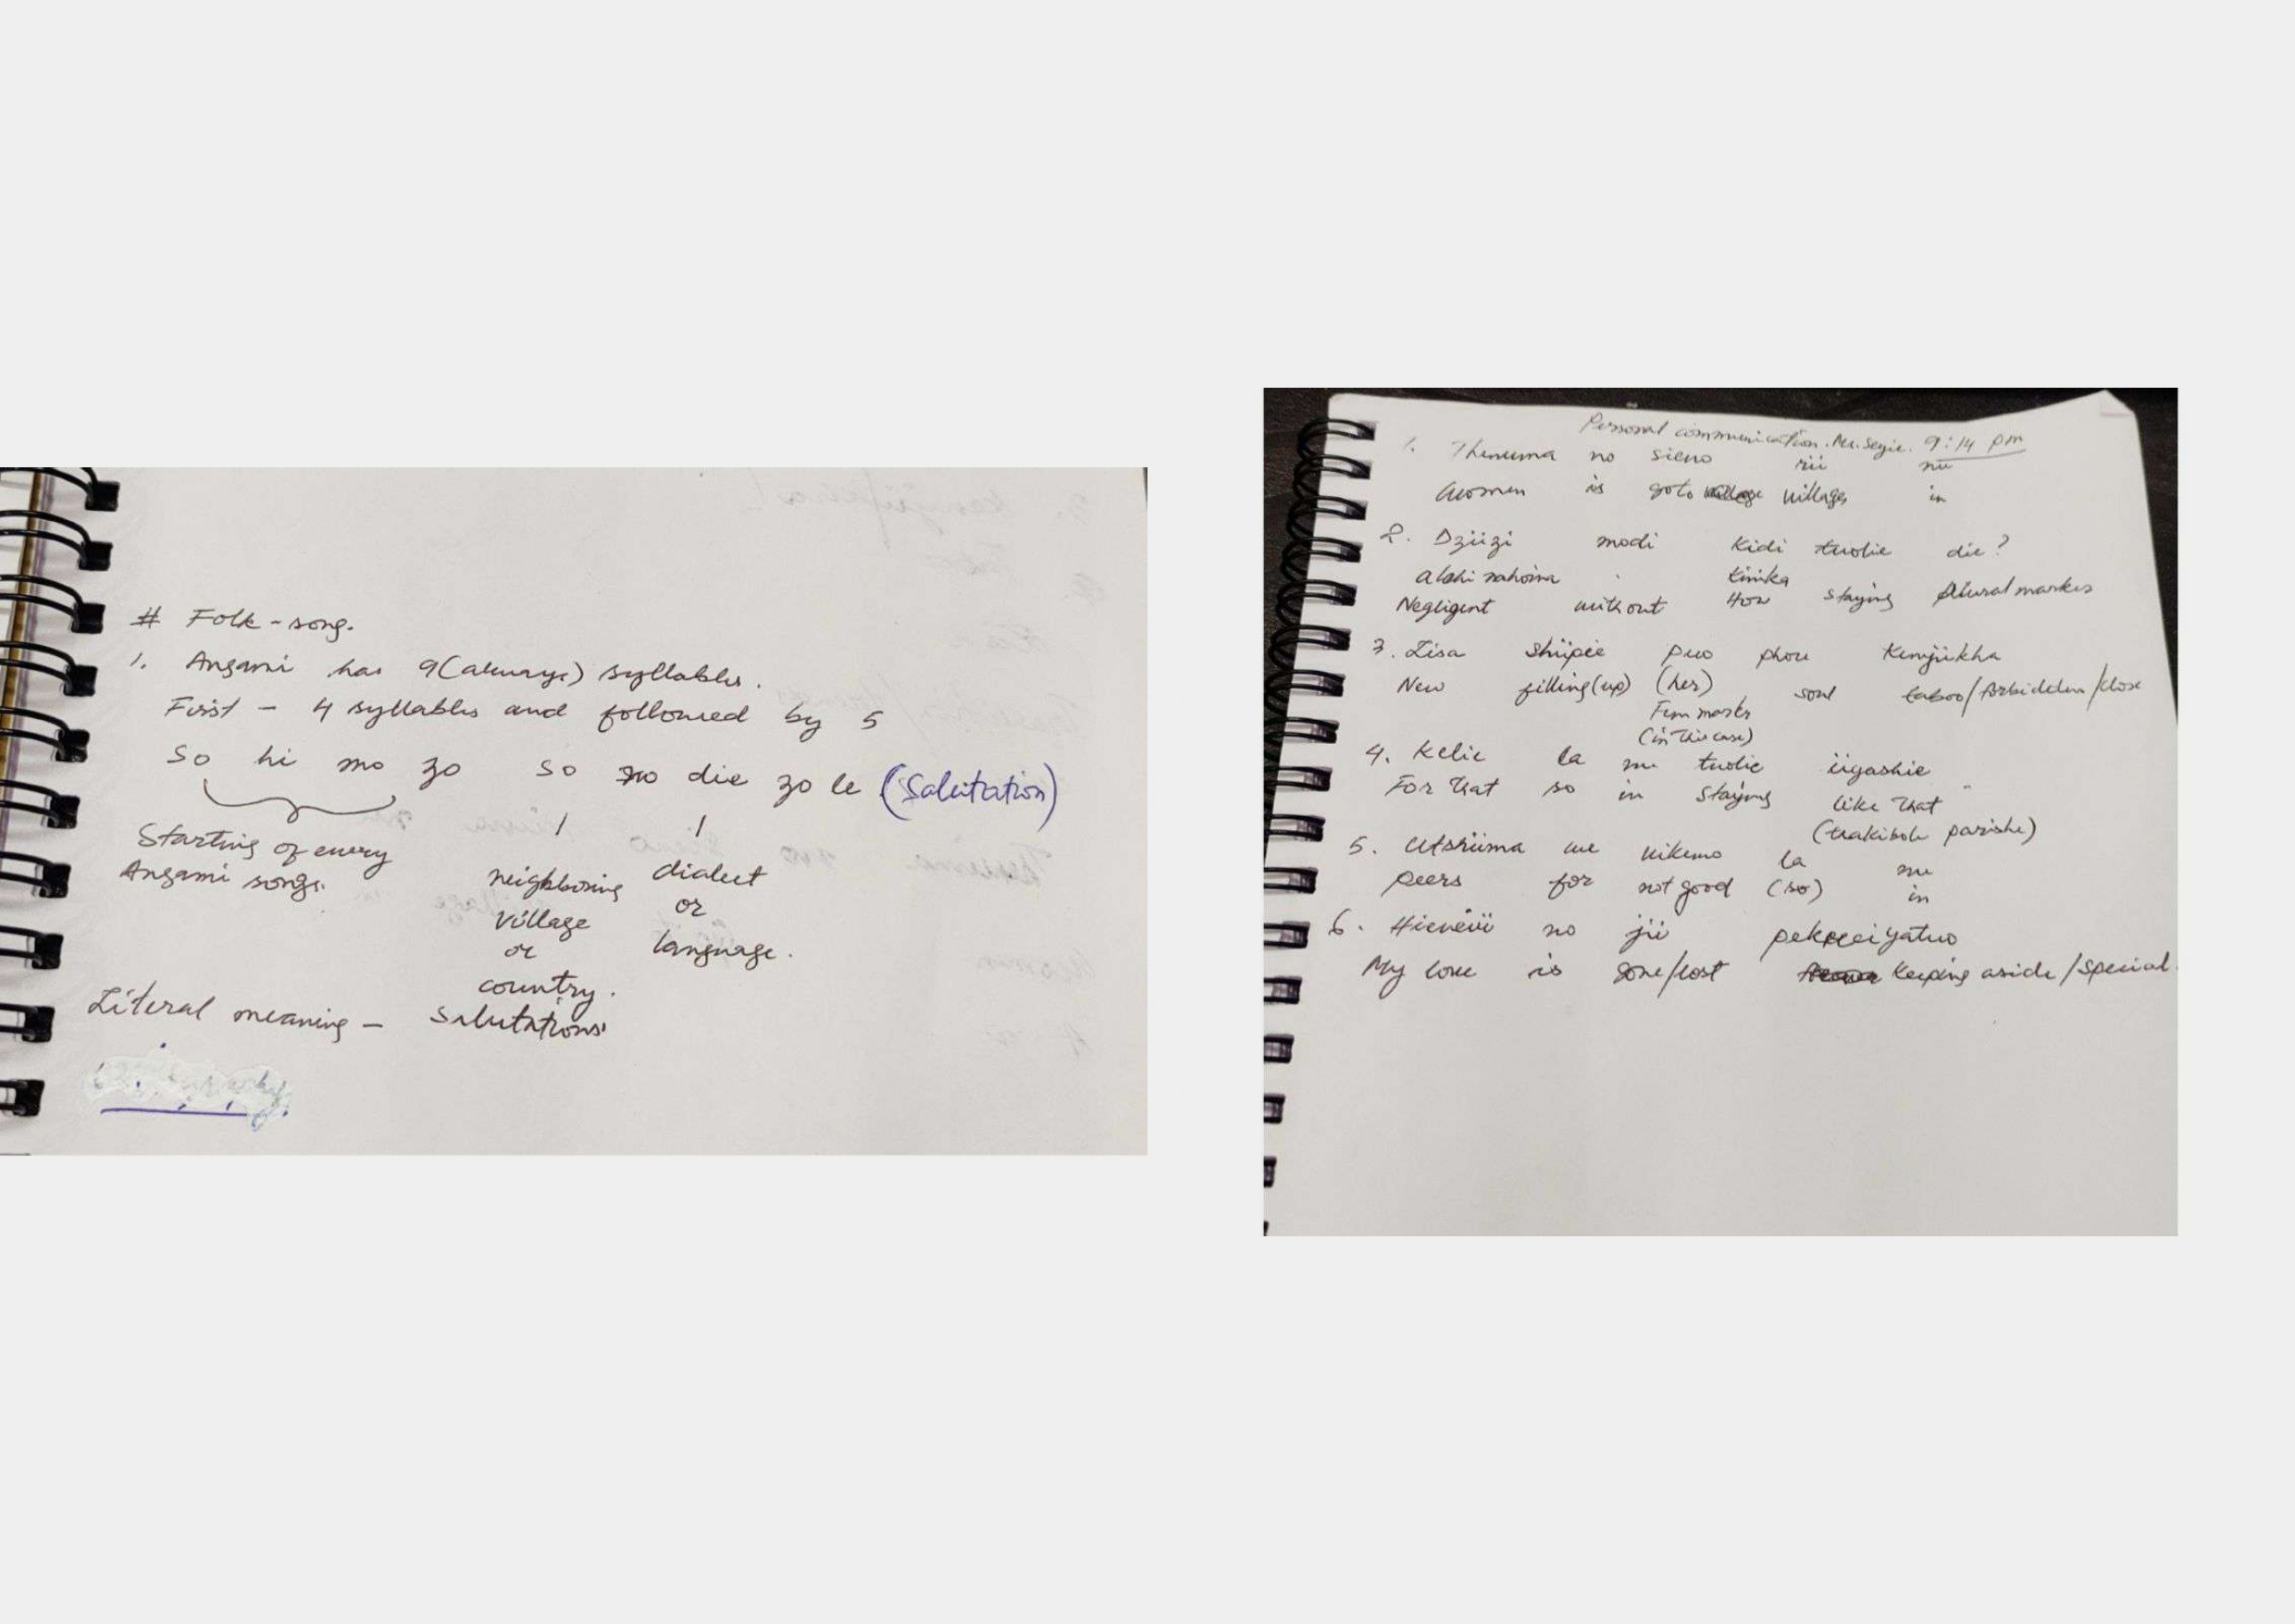 # Folk-song.
1. Angami has 9(always) syllables.
First - 4 syllables and followed by 5
So hi mo zo so no die zo le (Salutation)
Starting of every
Angami songs.
neighboring
village
or
country.
dialect
or
language.
Literal meaning - Salutations
Personal communication. Mr. Seyie. 9:14 pm
1. Thenuma no sieno rü nu
Women is goto village in
2. Dzüzi modi kidi tuolie die?
Kinika
Negligent without How staying Plural marker
3. Lisa shüpie puo phou Kenjükha
New filling(up) (her) soul taboo/forbidden/close
Fem marker
(in this case)
4. Kelie la nu tuolie ügashie
For that so in staying like that
(thakibole parishe)
5. Utsüma we vikemo la nu
peers for not good (so) in
6. Hievëü no jü
My love is gone/lost keeping aside/special